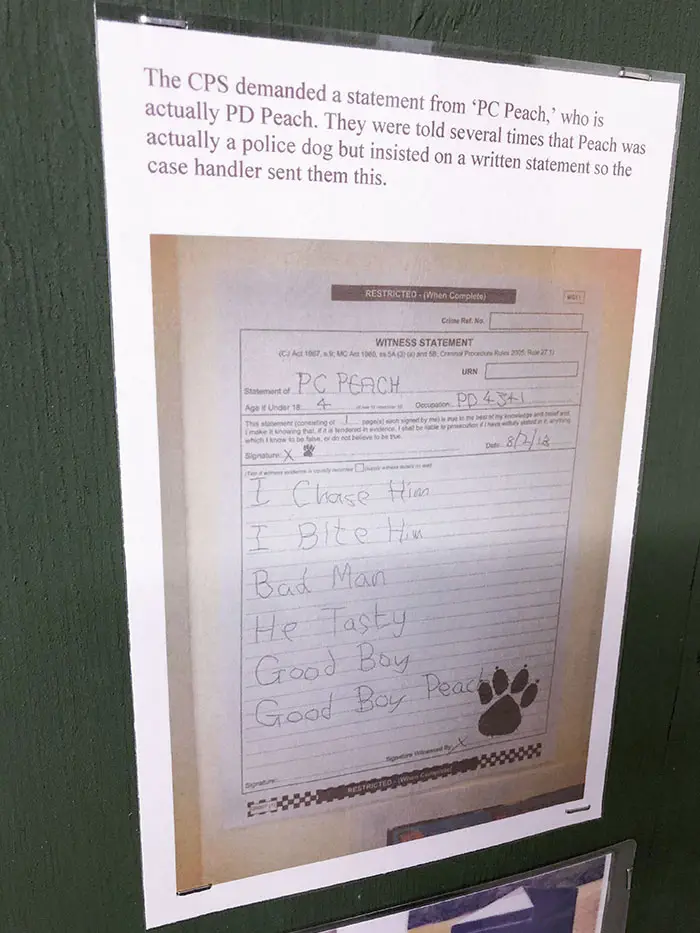 The CPS demanded a statement from ‘PC Peach,’ who is
actually PD Peach. They were told several times that Peach was
actually a police dog but insisted on a written statement so the
case handler sent them this.
RESTRICTED - (When Complete)
MG11
Crime Ref. No.
WITNESS STATEMENT
(CJ Act 1967, s.9; MC Act 1980, ss.5A (3) (a) and 5B; Criminal Procedure Rules 2005, Rule 27.1)
URN
Statement of PC PEACH
Age if Under 18: 4 Occupation: PD 4341
This statement (consisting of 1 page(s) each signed by me) is true to the best of my knowledge and belief and
I make it knowing that, if it is tendered in evidence, I shall be liable to prosecution if I have wilfully stated in it anything
which I know to be false, or do not believe to be true.
Signature: X Date: 8/2/18
I Chase Him
I Bite Him
Bad Man
He Tasty
Good Boy
Good Boy Peach
Signature: Signature Witnessed By: X
RESTRICTED - (When Complete)